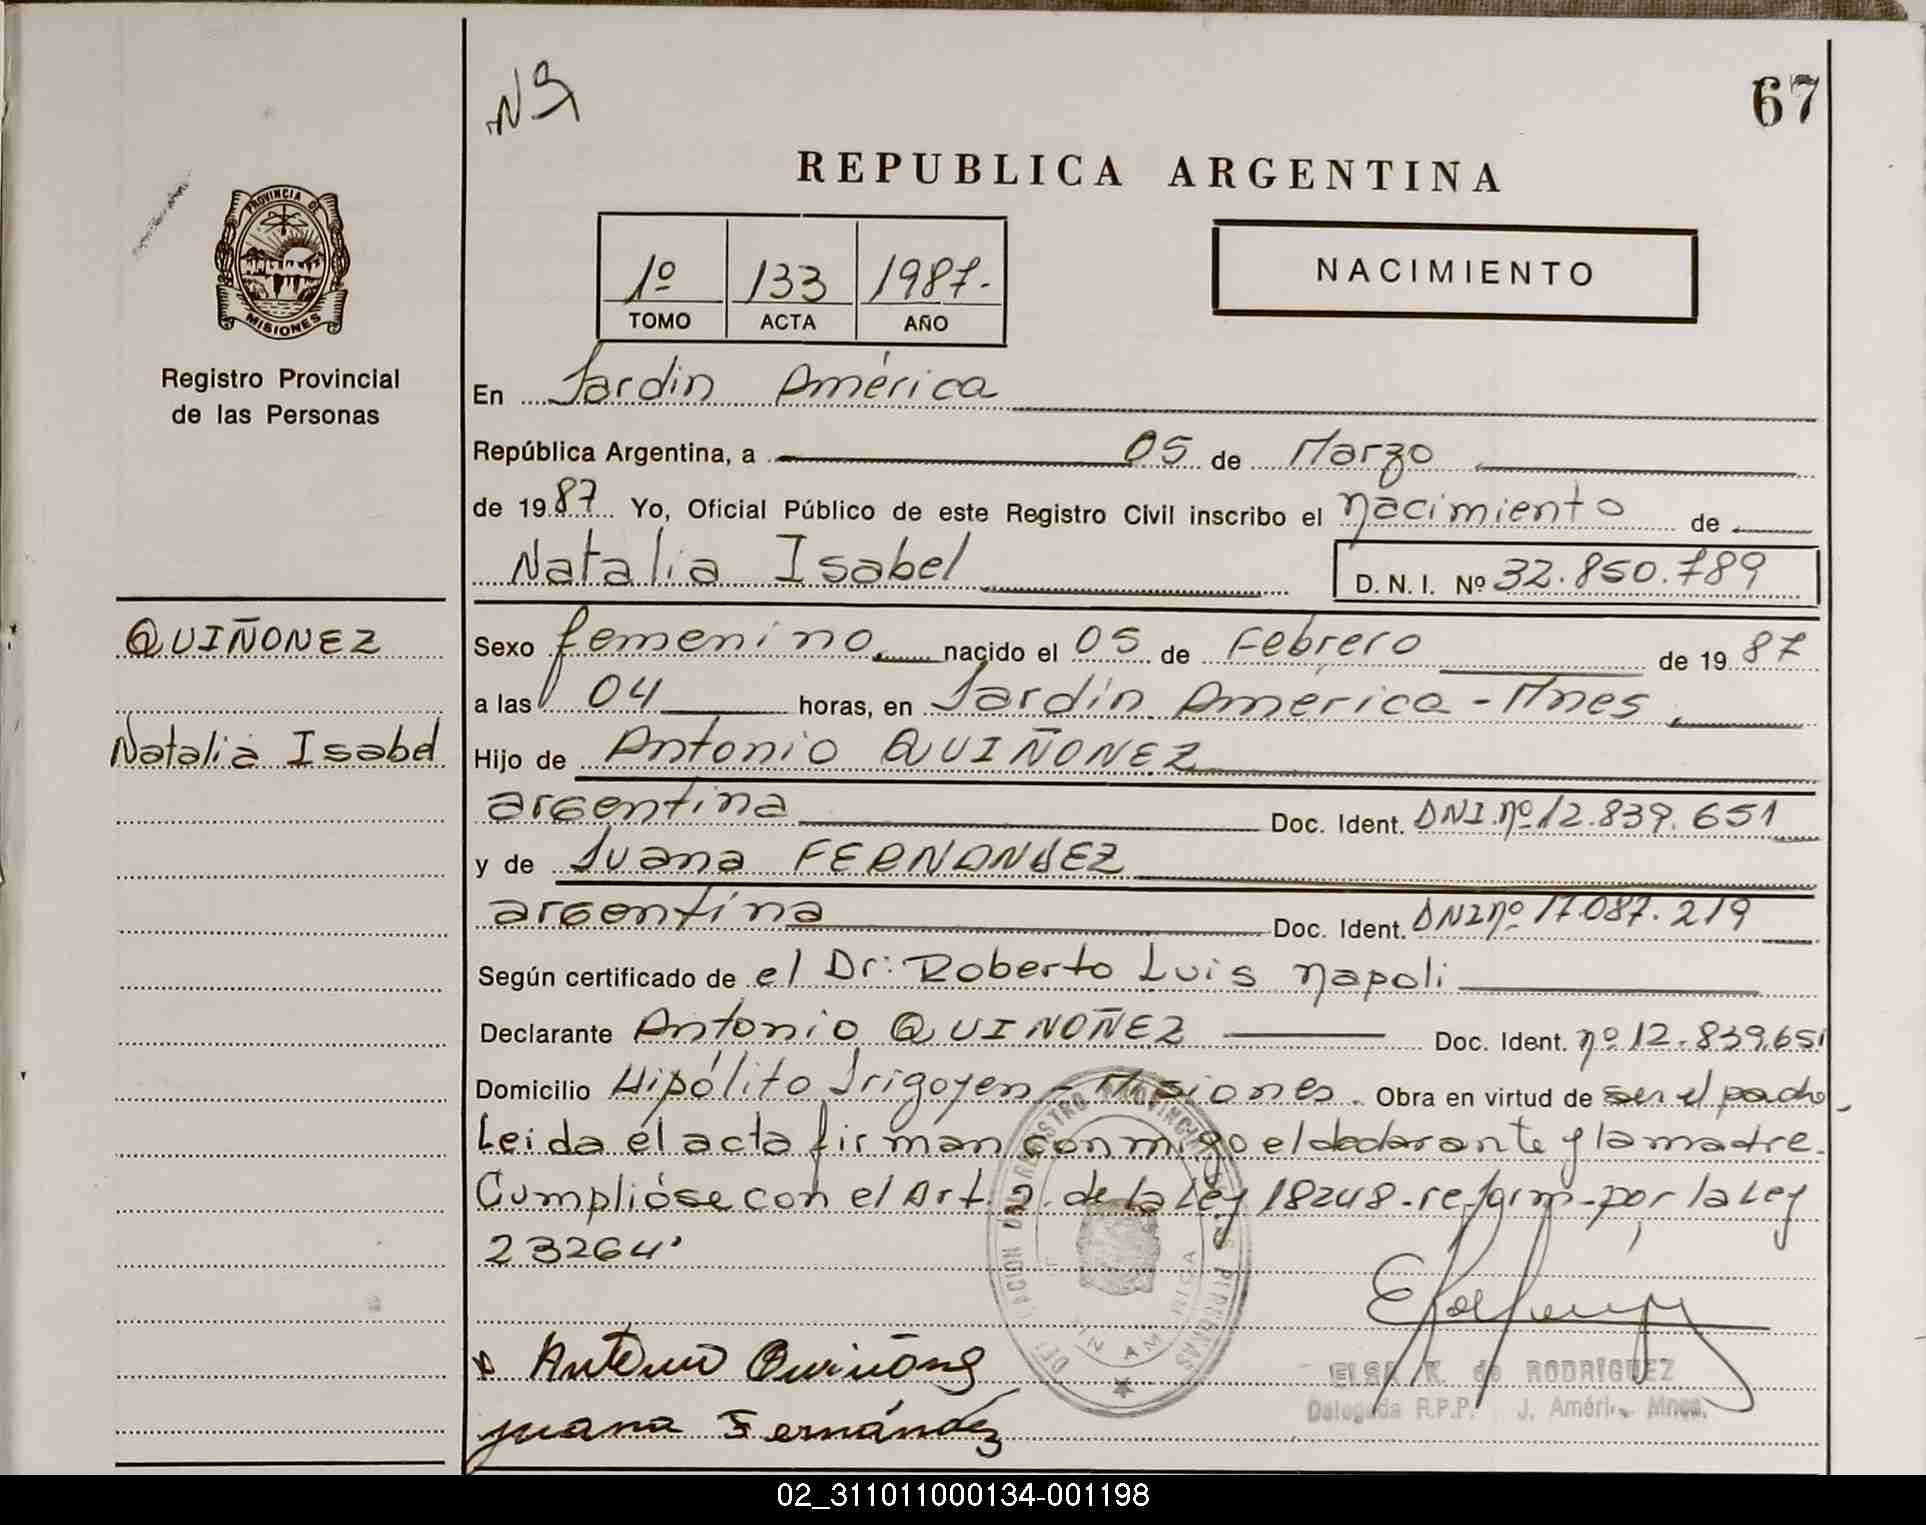 67
REPUBLICA ARGENTINA
PROVINCIA DE
MISIONES
1º 133 1987.-
TOMO ACTA AÑO
NACIMIENTO
Registro Provincial
de las Personas
En Jardin América
República Argentina, a 05 de Marzo
de 1987 Yo, Oficial Público de este Registro Civil inscribo el nacimiento de
Natalia Isabel D. N. I. Nº 32.850.789
QUIÑONEZ
Natalia Isabel
Sexo femenino. nacido el 05 de Febrero de 1987
a las 04 horas, en Jardín América - Mnes.
Hijo de Antonio QUIÑONEZ
argentina Doc. Ident. DNI.nº12.839.651
y de Juana FERNANDEZ
argentina Doc. Ident. DNI nº 17.087.219
Según certificado de el Dr: Roberto Luis Napoli
Declarante Antonio QUINOÑEZ Doc. Ident. nº 12.839.651
Domicilio Hipólito Irigoyen - Misiones. Obra en virtud de ser el padre.
Leida el acta firman conmigo el declarante y la madre.
Cumplióse con el Art. 2. de la Ley 18248 - reform - por la Ley
23264.
Antonio Quiñonez
Juana Fernández
ELSA K. de RODRÍGUEZ
Delegada R.P.P. J. Améri. Mnes.
02_311011000134-001198